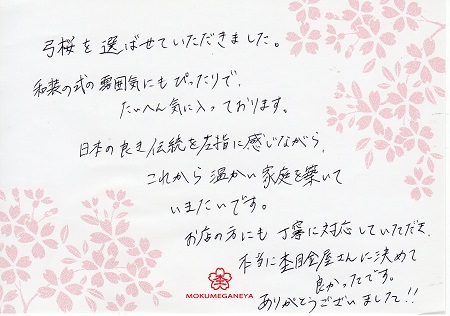 弓桜を選ばせていただきました。
和装の式の雰囲気にもぴったりで、
たいへん気に入っております。
日本の良き伝統を左指に感じながら、
これから温かい家庭を築いて
いきたいです。
お店の方にも丁寧に対応していただき、
本当に杢目金屋さんに決めて
良かったです。
ありがとうございました!!
MOKUMEGANEYA